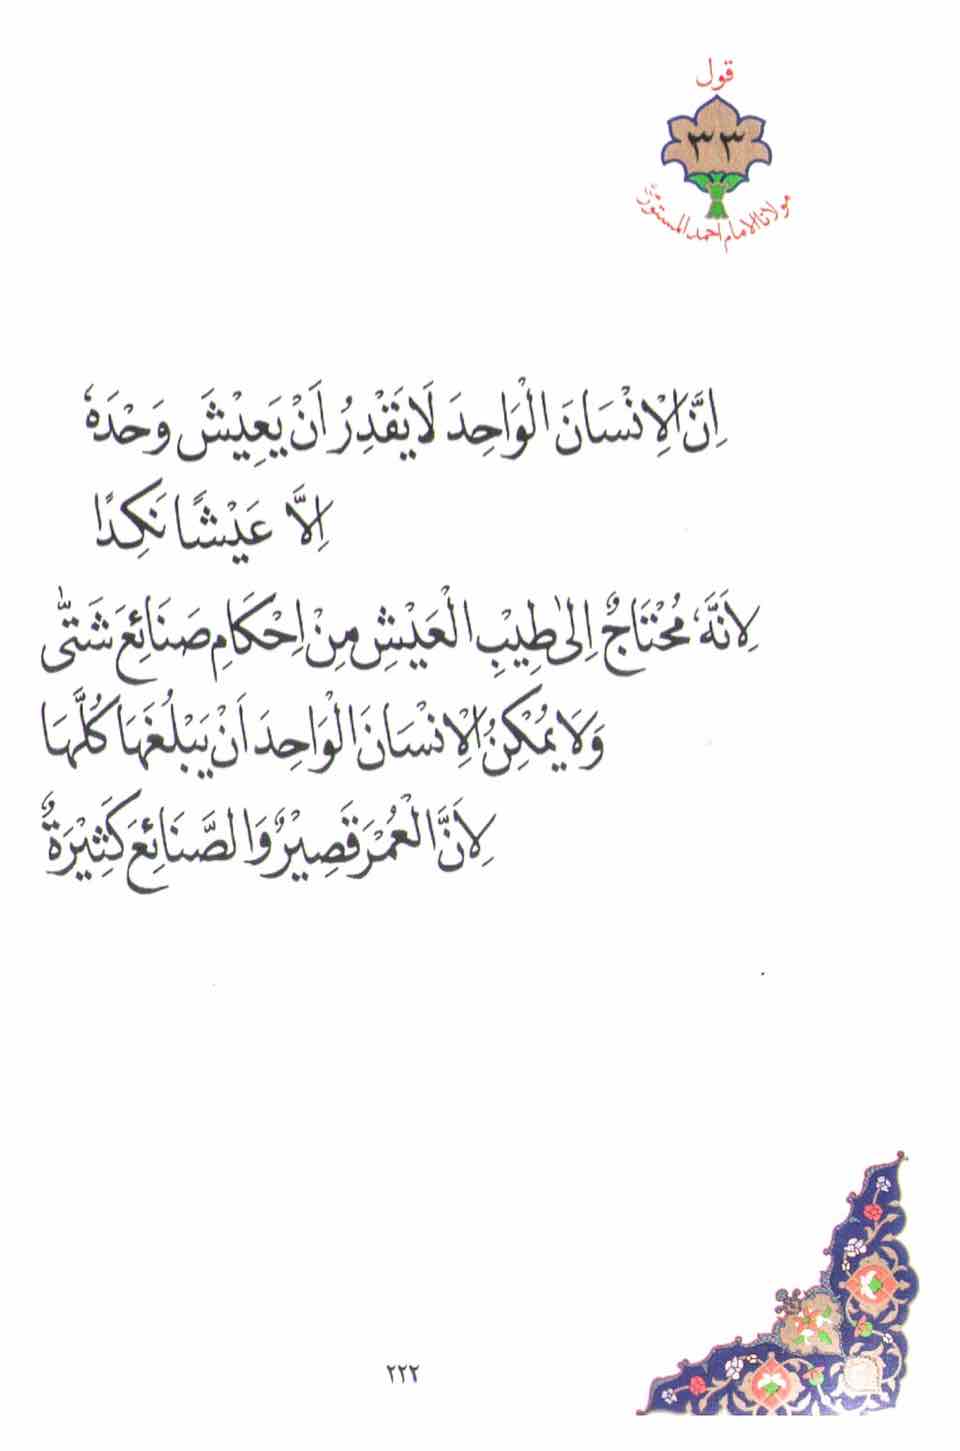 قول
٣٣
مولانا الامام احمد المستور
اِنَّ الْاِنْسَانَ الْوَاحِدَ لَا يَقْدِرُ اَنْ يَعِيْشَ وَحْدَهٗ
اِلَّا عَيْشًا نَكِدًا
لِاَنَّهٗ مُحْتَاجٌ اِلٰى طِيْبِ الْعَيْشِ مِنْ اِحْكَامِ صَنَائِعَ شَتّٰى
وَلَا يُمْكِنُ الْاِنْسَانَ الْوَاحِدَ اَنْ يَبْلُغَهَا كُلَّهَا
لِاَنَّ الْعُمْرَ قَصِيْرٌ وَالصَّنَائِعَ كَثِيْرَةٌ
٢٢٢